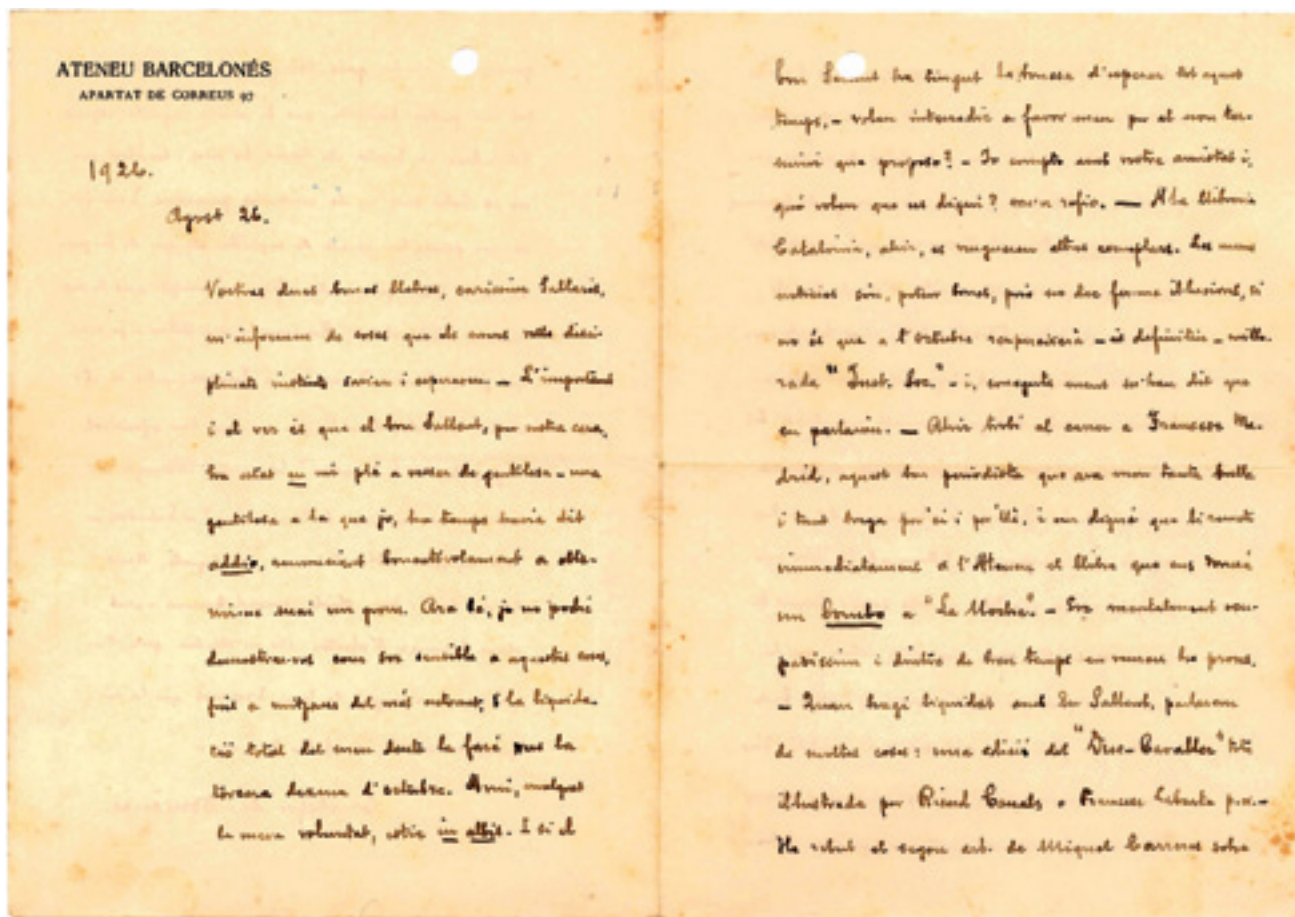 ATENEU BARCELONÉS
APARTAT DE CORREUS 97
1926.
Agost 26.
Vostres dues bones lletres, caríssim Sallarés,
m'informen de coses que els meus
instints savien i esperaven. – L'important
i el ver és que el bon Sallent, per nostra cara,
ha estat en mi plé a vesser de gentilesa – una
gentilesa a la que jo, ha temps havia dit
addio, renunciant a obte-
mai un grau. Ara bé, jo no podré
demostrar-vos com soc sensible a aquestes coses,
fins a mitjans del més entrant, i la liquida-
ció total del meu deute la faré pas la
tercera desena d'octubre. Avui, malgrat
la meva voluntat, estic in albis. I si el
bon Sallent ha tingut la bonesa d'esperar tot aquest
temps, – volen a favor meu per el nou ter-
mini que proposo? – Jo compto amb vostre amistat i,
qué volen que us digui? – A la llibreria
Catalonia, ahir, es altres exemplars. Les meves
noticies són, potser bones, peró no dec ferme illusions, si
no és que a l'octubre reapareixerà – és definitiu – millo-
rada "Inst. Soc." – i, m'han dit que
en parlarien. – Ahir trobí al carrer a Francesc Ma-
drid, aquest bon periodista que ara mou tanta bulla
i tant per'ci i per'llà, i em digué que li
immediatament a l'Ateneu el llibre que ens
un bombo a "La Noche". – Soc mentalment ocu-
padíssim i dintre de breu temps en
– Quan hagi liquidat amb En Sallent, parlarem
de moltes coses: una edició del "Dres-Cavaller" tota
illustrada per Ricard Canals o Francesc Labarta
He rebut el segon art. de Miquel Carreras sobre